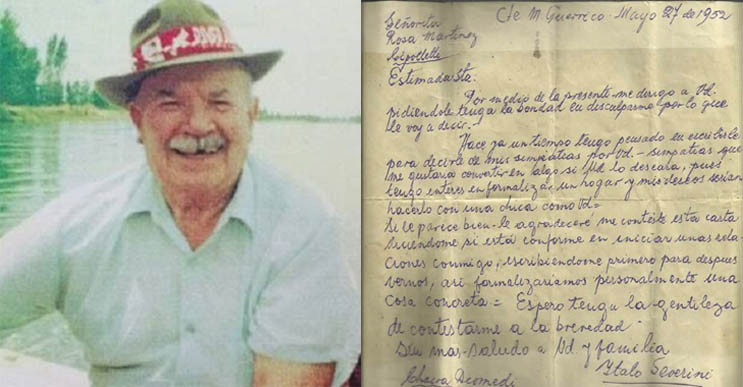 Cte M. Guerrico - Mayo 27 de 1952
Señorita
Rosa Martinez
Cipolletti
Estimada Sta:
Por medio de la presente me dirijo a Vd.
pidiendole tenga la bondad en desculparme por lo que
le voy a decir.-
Hace ya un tiempo tengo pensado en escribirle
para decirle de mis simpatias por Vd - simpatias que
me gustaria convertir en algo si Vd lo deseara, pues
tengo enteres en formalizar un hogar y mis deseos serian
hacerlo con una chica como Vd =
Si le parece bien - le agradeceré me conteste esta carta
diciendome si está conforme en iniciar unas rela
ciones conmigo, escribiendome primero para despues
vernos, asi formalizariamos personalmente una
cosa concreta = Espero tenga la gentileza
de contestarme a la brevedad
Sin mas - saludo a Vd y familia
Italo Severini